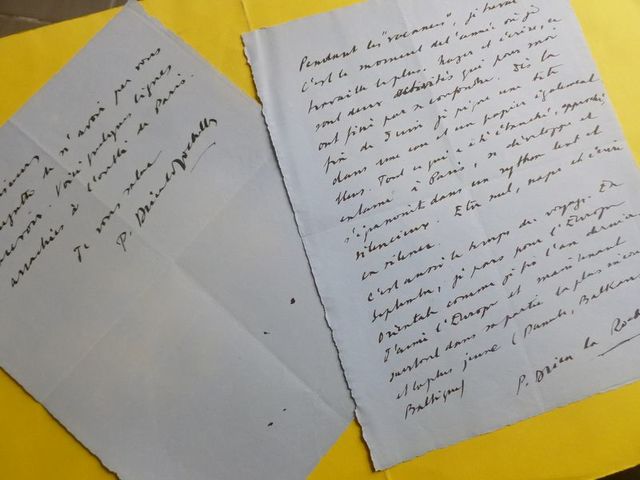 n'avoir pas vous
recevoir. Voici quelques lignes
arrachées à l'oubli de Paris.
Je vous salue
P. Drieu la Rochelle
Pendant les "vacances", je travaille
C'est le moment de l'année où je
travaille le plus. Nager et écrire, ce
sont deux activités qui pour moi
ont fini par se confondre. Dès la
fin de Juin je pique une tête
dans une eau et un papier également
bleus. Tout ce qui a été ébauché, approché,
entamé à Paris, se développe et
s'épanouit dans un rythme lent et
silencieux. Etre nu, nager et écrire
en silence.
C'est aussi le temps du voyage. En
Septembre, je pars pour l'Europe
Orientale comme je fis l'an dernier.
J'aime l'Europe et maintenant
surtout dans sa partie la plus
et la plus jeune (Danube, Balkans,
Baltique)
P. Drieu la Roch